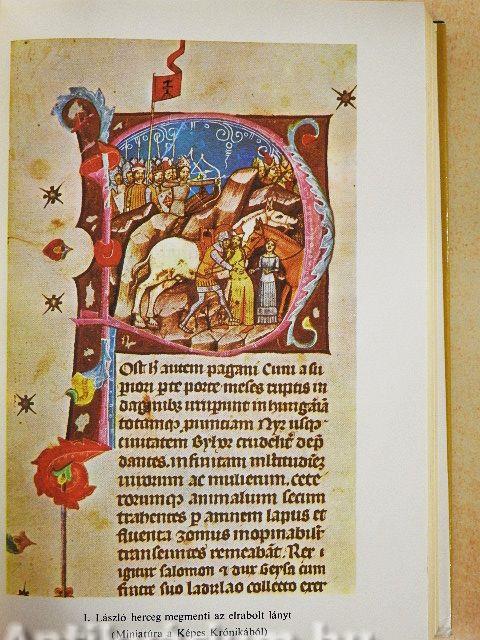 Ost h̅ autem pagani Cum a su
piori p̱te porte meses ruptis in
daginibꝫ irrupunt in hungͣiā
totamqꝫ, ꝓuinciam Nyr usqꝫ
ciuitatem Byhor crudelit̄ dep̄
dantes, infinitam ml̄titudiēꝫ
uirorum ac mulierum, cete
rorumqꝫ animalium secum
trahentes ꝑ amnem lapus et
fluenta zomus inopinabilit̄
transeuntes remeabāt. Rex i
gitur salomon ⁊ dux Geysa cum
fratre suo Ladizlao collecto exer
I. László herceg megmenti az elrabolt lányt
(Miniatúra a Képes Krónikából)